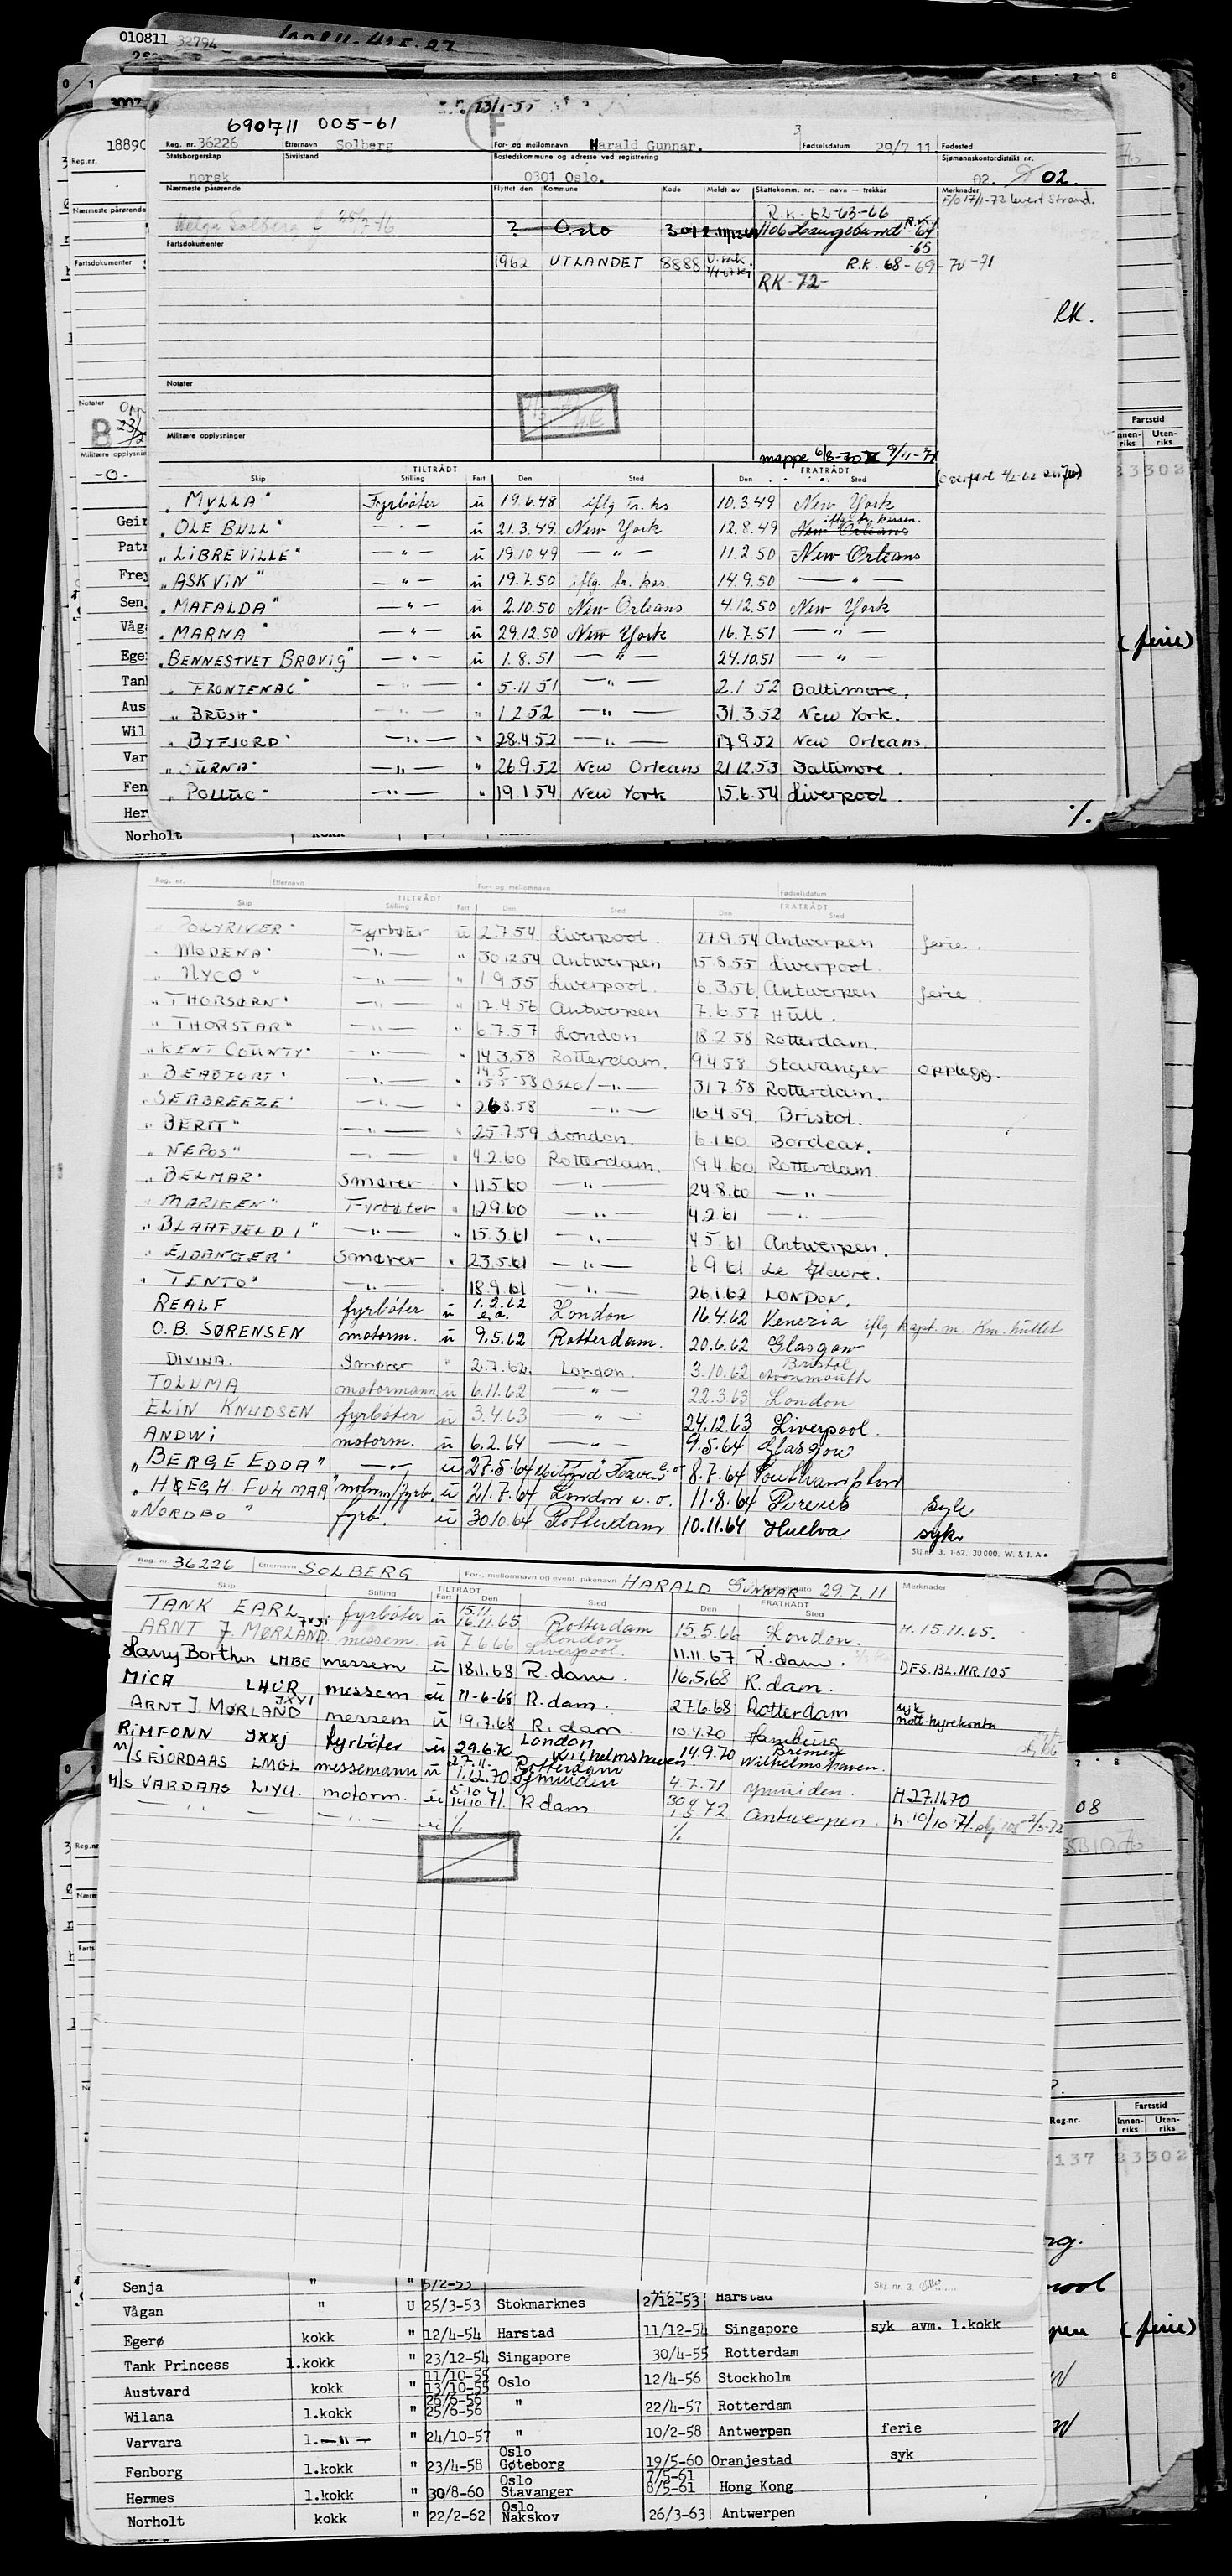 010811 32794
690711 005-61
Reg. nr. 36226 Etternavn Solberg For- og mellomnavn Harald Gunnar. Fødselsdato 29/7 11 Fødested
Statsborgerskap Sivilstand Bostedskommune og adresse ved registrering Sjømannskontordistrikt nr.
norsk 0301 Oslo. 02. 02.
Nærmeste pårørende Flyttet den Kommune Kode Meldt av Skattekomm. nr. — navn — trekkår Merknader
F/o 17/1-72 levert Strand.
R.K. 62-63-66
Helga Solberg
? Oslo 301
Fartsdokumenter
-65
1962 UTLANDET 8888 R.K. 68-69-70-71
RK-72-
RK.
Notater
Militære opplysninger
mappe 6/8-70 9/11-71
TILTRÅDT FRATRÅDT
Skip Stilling Fart Den Sted Den Sted
"MYLLA" Fyrbøter u 19.6.48 iflg tr. ks 10.3.49 New York
"OLE BULL" — " — u 21.3.49 New York 12.8.49 New Orleans
"LIBREVILLE" — " — u 19.10.49 — " — 11.2.50 New Orleans
"ASKVIN" — " — u 19.7.50 iflg. tr. kas. 14.9.50 — " —
"MAFALDA" — " — u 2.10.50 New Orleans 4.12.50 New York
"MARNA" — " — u 29.12.50 New York 16.7.51 — " —
"BENNESTVET BRØVIG" — " — u 1.8.51 — " — 24.10.51 — " —
"FRONTENAC" — " — " 5.11 51 — " — 2.1 52 Baltimore.
"BRUSH" — " — " 1 2 52 — " — 31.3.52 New York.
"BYFJORD" — " — " 28.4.52 — " — 17.9.52 New Orleans.
"SURNA" — " — " 26.9.52 New Orleans 21.12.53 Baltimore.
"POLLUC" — " — " 19.1.54 New York 15.6.54 Liverpool.
%.
Reg. nr. Etternavn For- og mellomnavn Fødselsdatum
TILTRÅDT FRATRÅDT
Skip Stilling Fart Den Sted Den Sted
"POLYRIVER" Fyrbøter u 2.7.54 Liverpool. 27.9.54 Antwerpen ferie.
"MODENA" — " — " 30.12.54 Antwerpen 15.8.55 Liverpool.
"NYCO" — " — " 1 9 55 Liverpool. 6.3.56 Antwerpen ferie.
"THORSØRN" — " — " 17.4.56 Antwerpen 7.6.57 Hull.
"THORSTAR" — " — " 6.7.57 London 18.2.58 Rotterdam.
"KENT COUNTY" — " — " 14.3.58 Rotterdam. 9.4.58 Stavanger opplegg.
"BEAUFORT" — " — " 14.5 15.5-58 Oslo/ — " — 31.7.58 Rotterdam.
"SEABREEZE" — " — " 26.8.58 — " — 16.4.59 Bristol.
"BERIT" — " — " 25.7.59 London. 6.1.60 Bordeax.
"NEPOS" — " — " 4.2.60 Rotterdam. 19.4.60 Rotterdam.
"BELMAR" Smører " 11.5.60 — " — 24.8.60 — " —
"MARIKEN" Fyrbøter " 12.9.60 — " — 4.2.61 — " —
"BLAAFJELD I" — " — " 15.3.61 — " — 4 5.61 Antwerpen.
"EIDANGER" Smører " 23.5.61 — " — 6 9 61 Le Havre.
"TENTO" — " — " 18.9.61 — " — 26.1.62 LONDON.
REALF fyrbøter u 1.2.62 e.o. London 16.4.62 Venezia iflg kapt. m. Km. hullet
O.B. SØRENSEN motorm. u 9.5.62 Rotterdam. 20.6.62 Glasgow
DIVINA. Smører " 2.7.62. London. 3.10.62 Bristol Avonmouth
TOLUMA motormann u 6.11.62 — " — 22.3.63 London
ELIN KNUDSEN fyrbøter u 3.4.63 — " — 24.12.63 Liverpool.
ANDWI motorm. u 6.2.64 — " — 9.5.64 Glasgow
"BERGE EDDA" — " — u 27.5.64 Milford Haven e.o 8.7.64 Southampton
"HØEGH FULMAR" motorm/fyrb. u 21.7.64 London e.o. 11.8.64 Pireus syk
"NORDBO" fyrb. u 30.10.64 Rotterdam 10.11.64 Huelva syk
Skj.nr. 3. 1-62. 30000. W. & J. A.
Reg. nr. 36226 Etternavn SOLBERG For-, mellomnavn og event. pikenavn HARALD GUNNAR 29.7.11 Merknader
Skip Stilling TILTRÅDT Fart Den Sted FRATRÅDT Den Sted
TANK EARL fyrbøter u 15.11. 16.11.65 Rotterdam 15.5.66 London. H. 15.11.65.
ARNT J. MØRLAND JXYI messem. u 7.6.66 London Liverpool. 11.11.67 R.dam.
Harry Borthen LMBE messem u 18.1.68 R.dam. 16.5.68 R.dam. DFS.BL.NR 105
MICA LHUR messem. u 11-6-68 R.dam. 27.6.68 Rotterdam syk mott. hyrekonto
ARNT J. MØRLAND JXYI messem u 19.7.68 R.dam. 10.4.70 Hamburg
RIMFONN JXXJ fyrbøter u 29.6.70 London Wilhelmshaven 14.9.70 Bremen Wilhelmshaven.
M/S FJORDAAS LMGL messemann u 27.11. 1.12.70 Rotterdam Ijmuiden 4.7.71 Ymuiden. H 27.11.70
M/S VARDAAS LIYU. motorm. u 5.10 14.10 71. R.dam. 30 4 1 5 72 Antwerpen. h. 10/10 71.
— " — — " — u % %
Skj. nr. 3
Senja " " 5/2-53 2/12-53 Harstad
Vågan " U 25/3-53 Stokmarknes
Egerø kokk " 12/4-54 Harstad 11/12-54 Singapore syk avm. 1.kokk
Tank Princess 1.kokk " 23/12-54 Singapore 30/4-55 Rotterdam
Austvard kokk " 11/10-55 13/10-55 Oslo 12/4-56 Stockholm
Wilana 1.kokk " 25/6-56 " 22/4-57 Rotterdam
Varvara 1. — " — " 24/10-57 " 10/2-58 Antwerpen ferie
Fenborg 1.kokk " 23/4-58 Oslo Gøteborg 19/5-60 Oranjestad syk
Hermes 1.kokk " 30/8-60 Oslo Stavanger 7/5-61 8/5-61 Hong Kong
Norholt kokk " 22/2-62 Oslo Nakskov 26/3-63 Antwerpen
Fartstid
Innenriks Utenriks
(ferie)